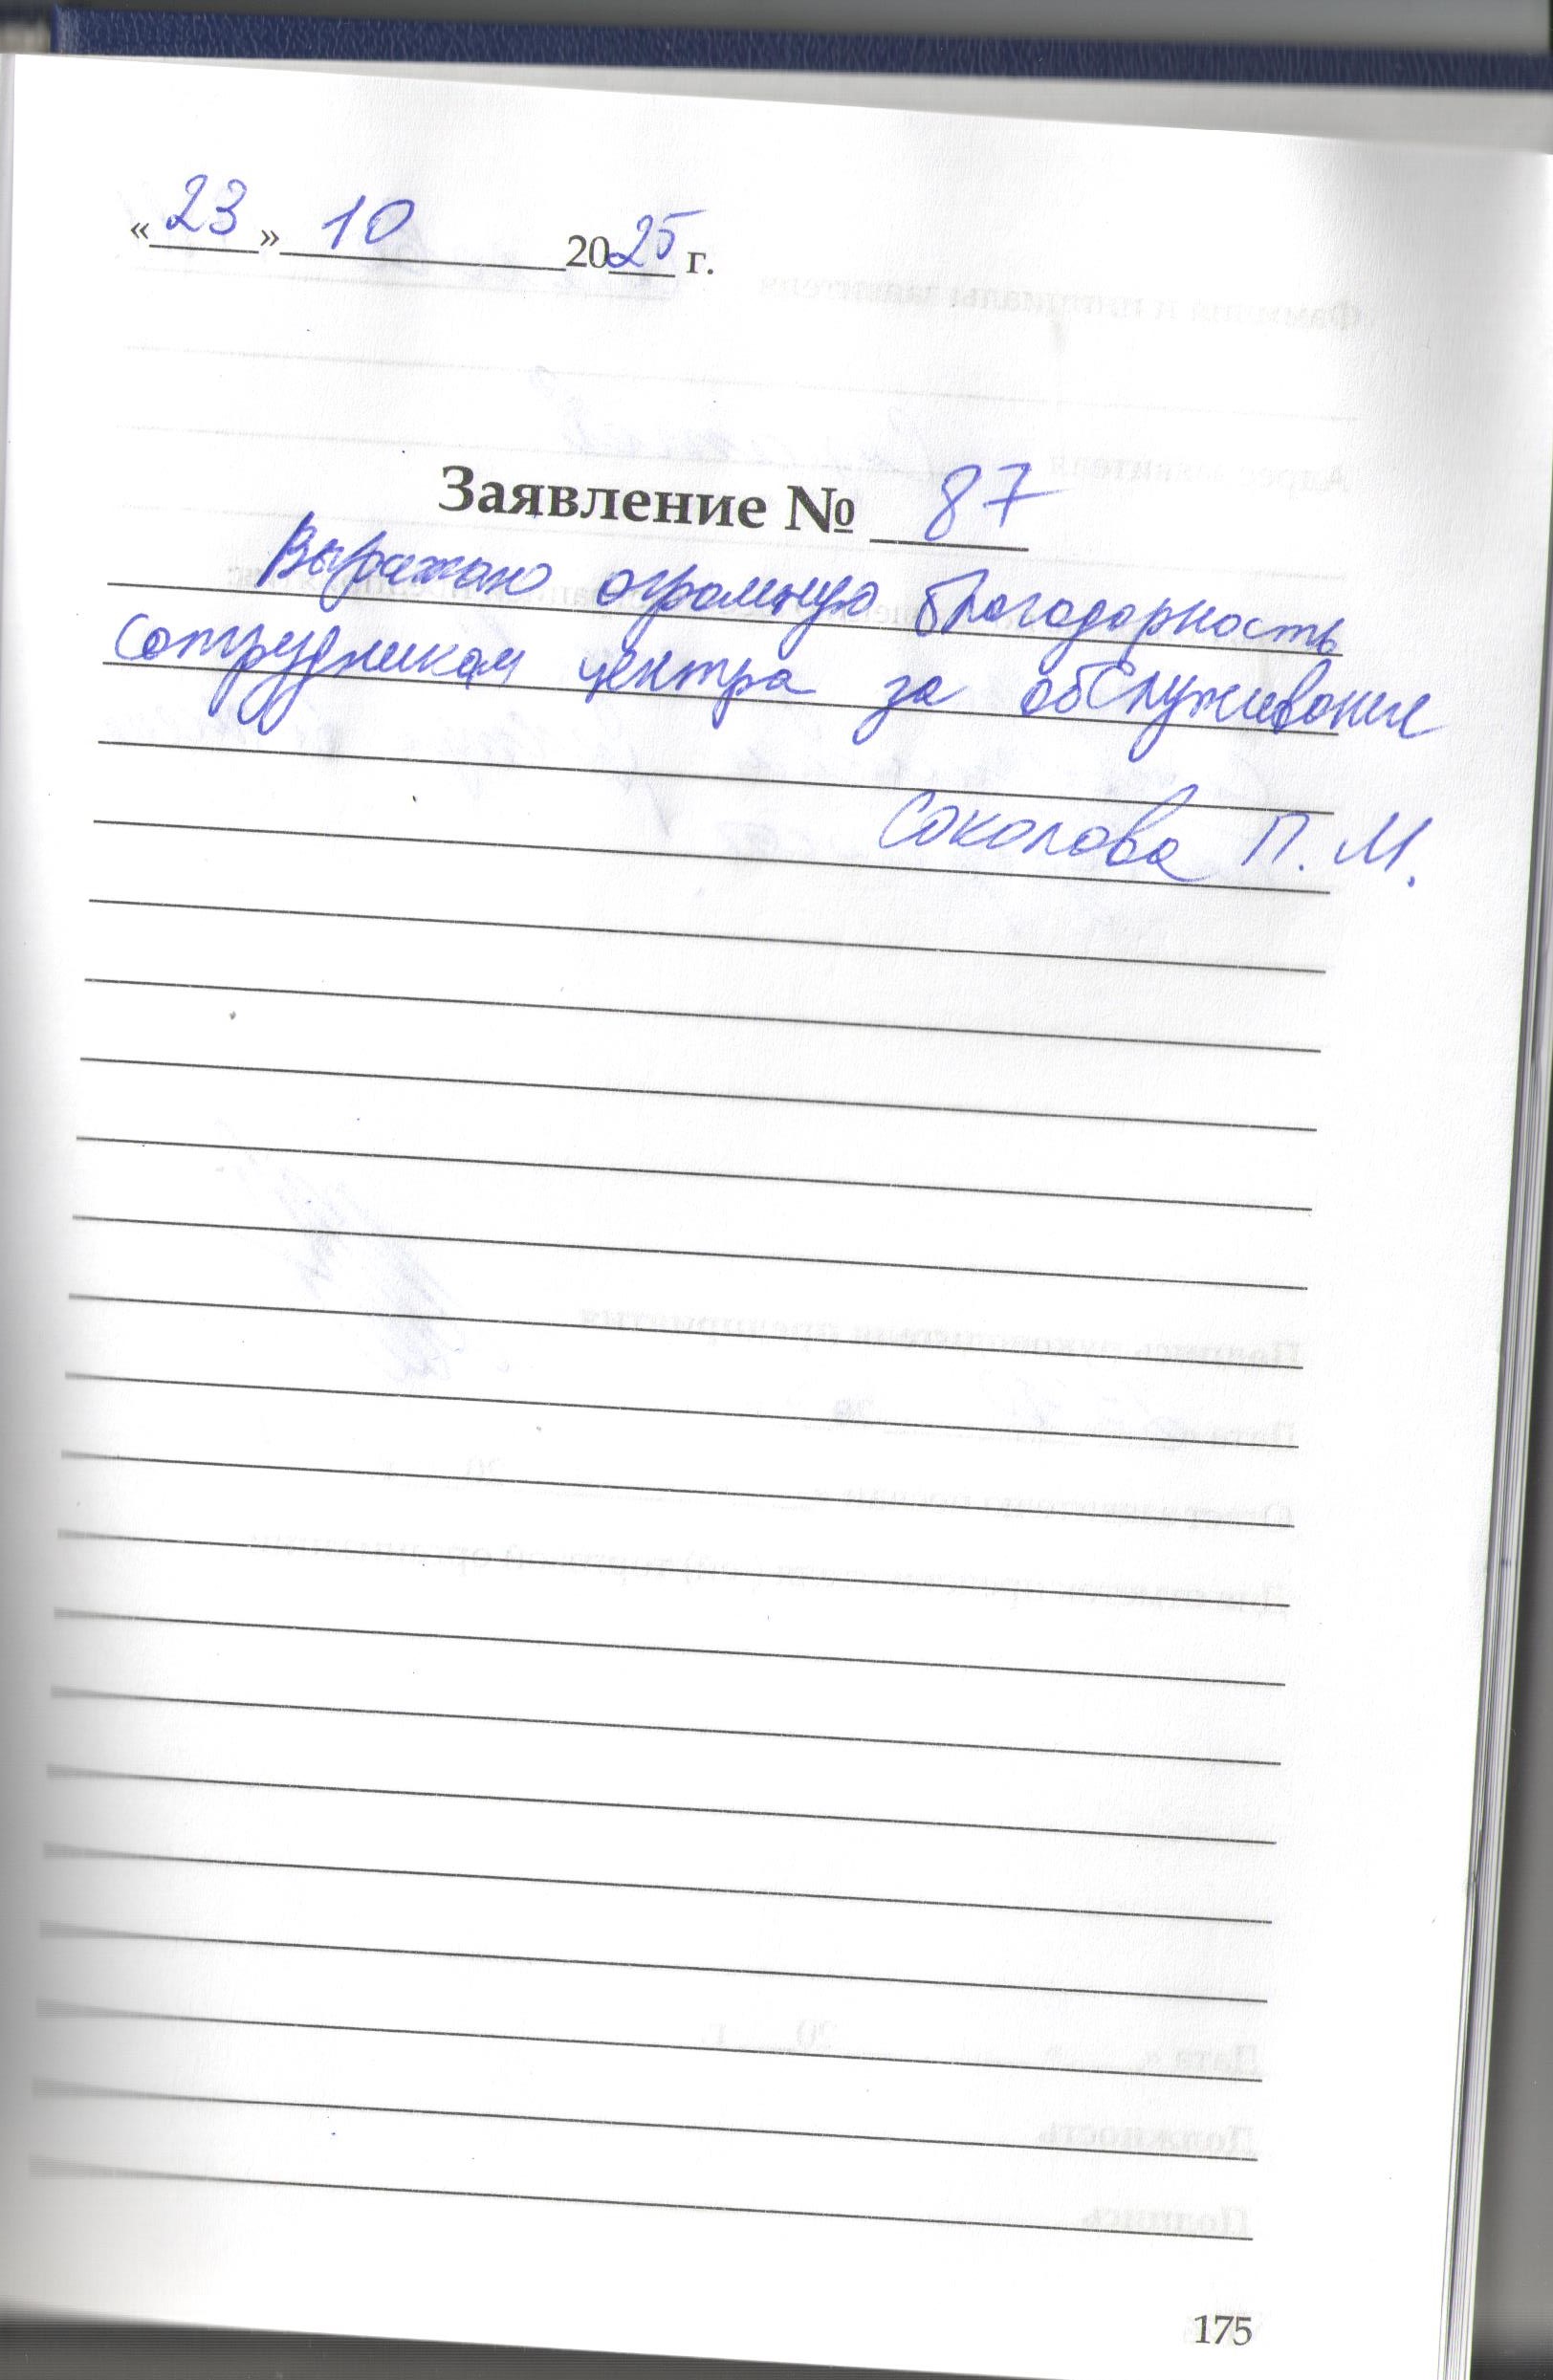 «23» 10 2025 г.
Заявление № 87
Выражаю огромную благодарность
сотрудникам центра за обслуживание
Соколова П. М.
175